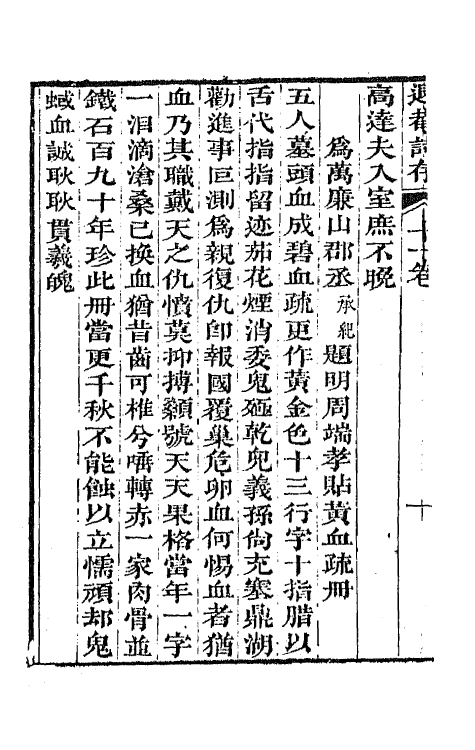 退菴詩存 卷十 十
高達夫入室庶不晚
爲萬廉山郡丞承紀題明周端孝貼黃血疏冊
五人墓頭血成碧血疏更作黃金色十三行字十指腊以
舌代指指留迹茄花煙消委鬼殛乾兒義孫尙充塞鼎湖
勸進事叵測爲親復仇卽報國覆巢危卵血何惕血者猶
血乃其職戴天之仇憤莫抑搏顙號天天果格當年一字
一泪滴滄桑已換血猶昔齒可椎兮嚥轉赤一家肉骨並
鐵石百九十年珍此冊當更千秋不能蝕以立懦頑却鬼
蜮血誠耿耿貫羲魄